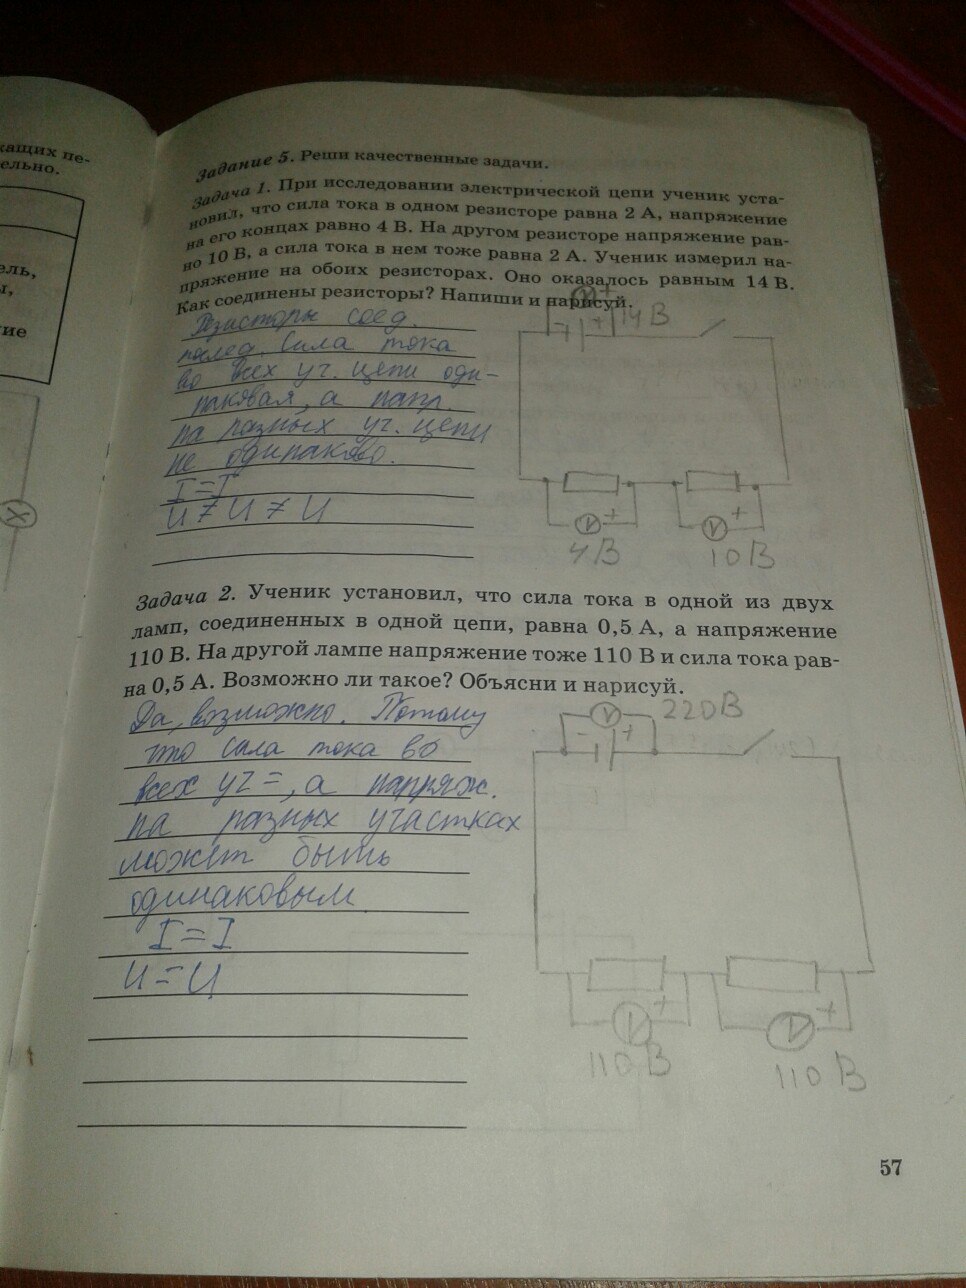 кащих пе-
ельно.
ель,
ы,
ие
Задание 5. Реши качественные задачи.
Задача 1. При исследовании электрической цепи ученик уста-
новил, что сила тока в одном резисторе равна 2 А, напряжение
на его концах равно 4 В. На другом резисторе напряжение рав-
но 10 В, а сила тока в нем тоже равна 2 А. Ученик измерил на-
пряжение на обоих резисторах. Оно оказалось равным 14 В.
Как соединены резисторы? Напиши и нарисуй.
Резисторы соед.
послед. Сила тока
во всех уч. цепи оди-
наковая, а напр.
на разных уч. цепи
не одинаково.
I = I
U ≠ U ≠ U
V +
- + 14 В
V + V +
4 В 10 В
Задача 2. Ученик установил, что сила тока в одной из двух
ламп, соединенных в одной цепи, равна 0,5 А, а напряжение
110 В. На другой лампе напряжение тоже 110 В и сила тока рав-
на 0,5 А. Возможно ли такое? Объясни и нарисуй.
Да, возможно. Потому
что сила тока во
всех уч =, а напряж.
на разных участках
может быть
одинаковым.
I = I
U = U
V 220 В
- +
V + V +
110 В 110 В
57